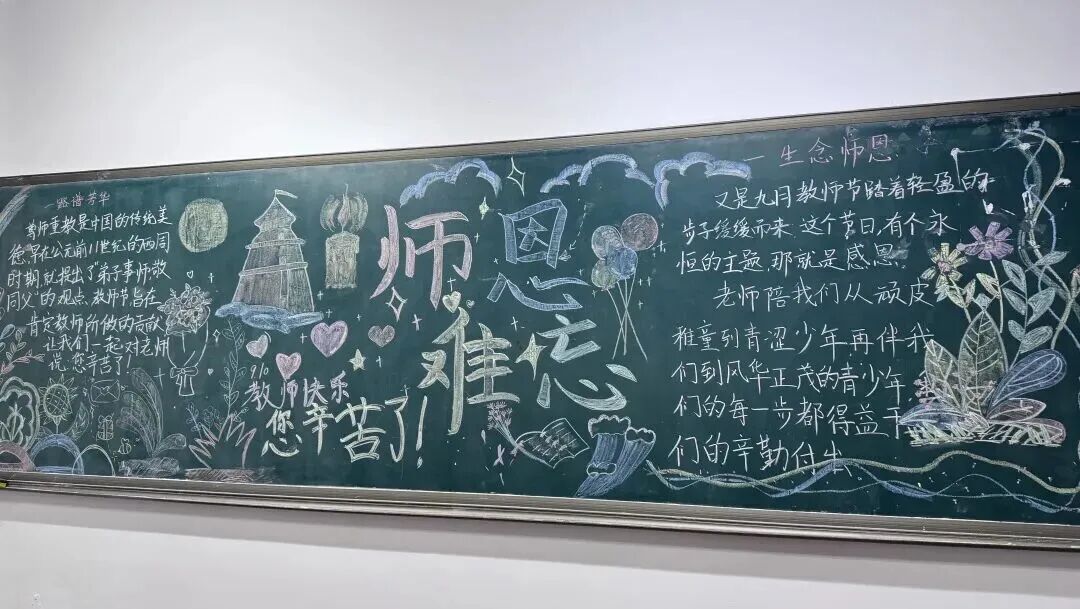 一路谱芳华
尊师重教是中国的传统美
德,早在公元前11世纪的西周
时期,就提出了"弟子事师敬
同父"的观点,教师节旨在
肯定教师所做的贡献
让我们一起对老师
说:您辛苦了!
师恩
难忘
9/10
教师快乐
您辛苦了!
一生念师恩
又是九月教师节踏着轻盈的
步子缓缓而来.这个节日,有个永
恒的主题,那就是感恩.
老师陪我们从顽皮
稚童到青涩少年再伴我
们到风华正茂的青少年
们的每一步都得益于
们的辛勤付出